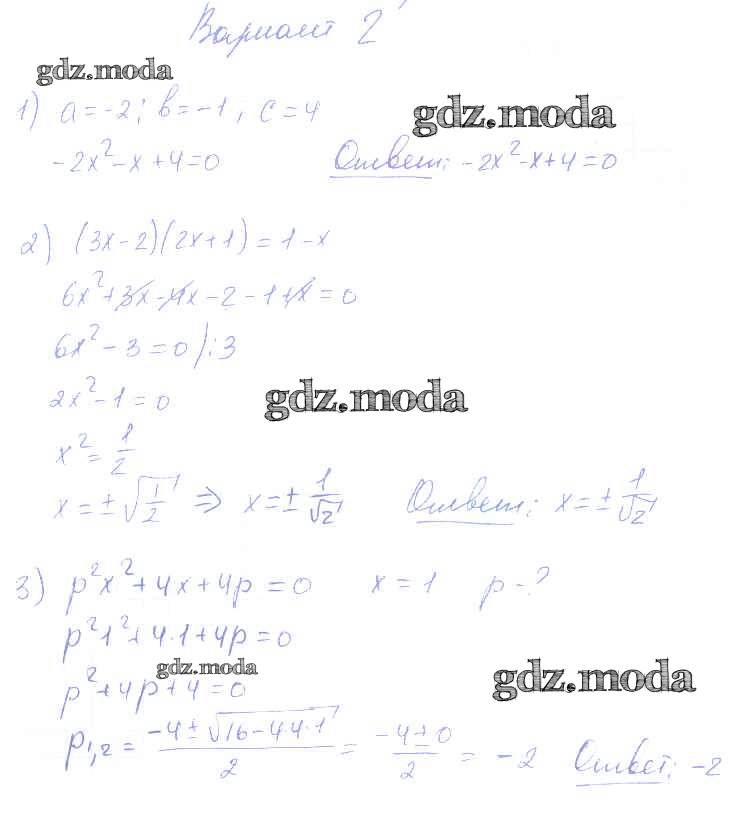 Вариант 2
gdz.moda
1) a = -2; b = -1; c = 4
gdz.moda
-2x² - x + 4 = 0 Ответ: -2x² - x + 4 = 0
2) (3x - 2)(2x + 1) = 1 - x
6x² + 3x - 4x - 2 - 1 + x = 0
6x² - 3 = 0 ) : 3
2x² - 1 = 0
gdz.moda
x² = 1/2
x = ± √(1/2) ⇒ x = ± 1/√2 Ответ: x = ± 1/√2
3) p²x² + 4x + 4p = 0 x = 1 p - ?
p²1² + 4·1 + 4p = 0
gdz.moda
p² + 4p + 4 = 0
gdz.moda
p₁,₂ = (-4 ± √(16 - 4·4·1))/2 = (-4 ± 0)/2 = -2 Ответ: -2